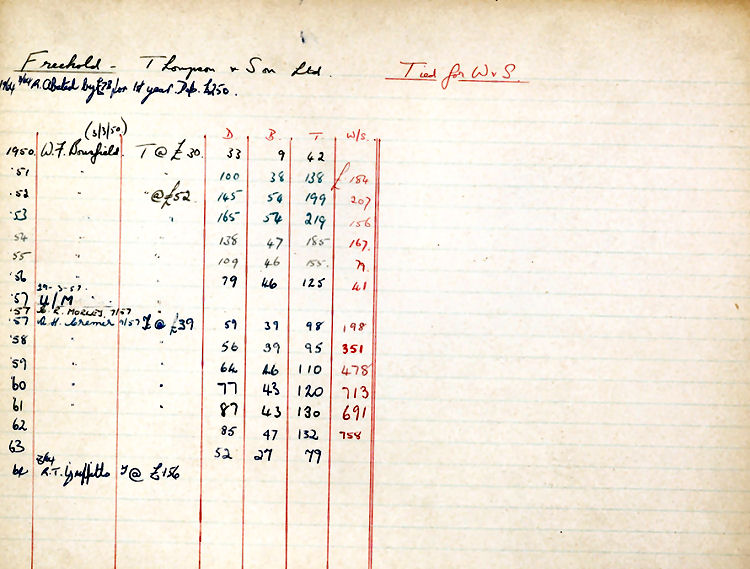 Freehold - Thompson & Son Ltd. Tied for W & S.
R. Abated by £78 for 1st year Dep. £250.
(3/3/50) D B. T W/S.
1950. W.F. Bousfield. T @ £30. 33 9 42
'51 " " 100 38 138 £ 184
'52 " " @ £52 145 54 199 207
'53 " " 165 54 219 156
54 " " 138 47 185 167.
55 " " 109 46 155.
'56 " " 79 46 125 41
29-3-57.
'57 U/M
'57 R. MORLEY 7/57
'57 Cremer 7/57 T @ £39 59 39 98 198
'58 " " 56 39 95 351
'59 " " 64 46 110 478
'60 " " 77 43 120 713
61 " " 87 43 130 691
62 85 47 132 758
63 52 27 79
64 R.T. Griffiths T @ £156